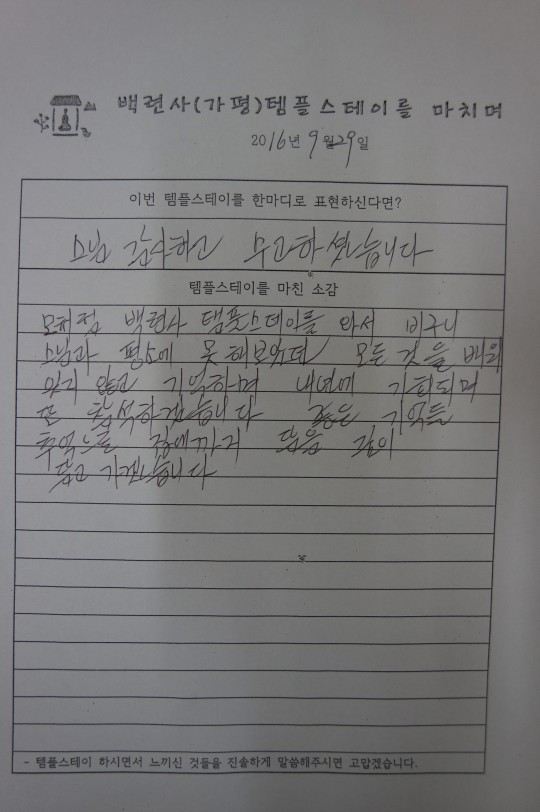 백련사(가평)템플스테이를 마치며
2016년 9월29일
이번 템플스테이를 한마디로 표현하신다면?
스님 감사하고 수고하셨습니다
템플스테이를 마친 소감
모처럼 백련사 탬플스테이를 와서 비구니
스님과 평소에 못해보았던 모든 것을 배워
잊지 않고 기억하며 내년에 기회되면
또 참석하겠습니다 좋은 기억들
추억으로 집에까지 깊이
담고 가겠습니다
- 템플스테이 하시면서 느끼신 것들을 진솔하게 말씀해주시면 고맙겠습니다.